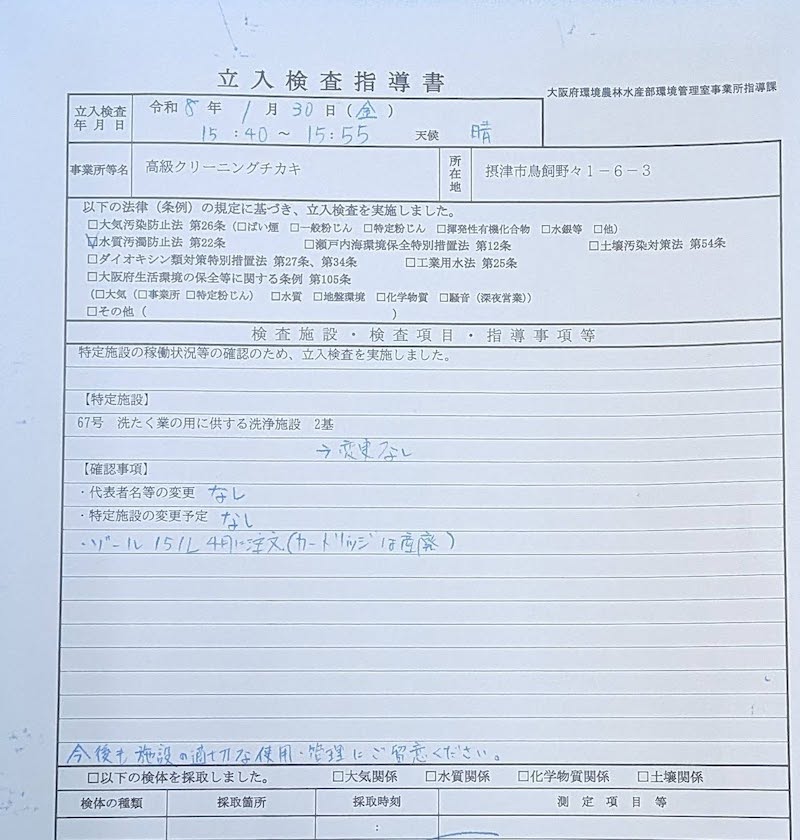 立入検査指導書
大阪府環境農林水産部環境管理室事業所指導課
立入検査年月日 令和8年1月30日(金)
15:40～15:55 天候 晴
事業所等名 高級クリーニングチカキ 所在地 摂津市鳥飼野々1－6－3
以下の法律（条例）の規定に基づき、立入検査を実施しました。
□大気汚染防止法 第26条（□ばい煙 □一般粉じん □特定粉じん □揮発性有機化合物 □水銀等 □他）
☑水質汚濁防止法 第22条 □瀬戸内海環境保全特別措置法 第12条 □土壌汚染対策法 第54条
□ダイオキシン類対策特別措置法 第27条、第34条 □工業用水法 第25条
□大阪府生活環境の保全等に関する条例 第105条
（□大気（□事業所 □特定粉じん） □水質 □地盤環境 □化学物質 □騒音（深夜営業））
□その他（ ）
検査施設・検査項目・指導事項等
特定施設の稼働状況等の確認のため、立入検査を実施しました。
【特定施設】
67号 洗たく業の用に供する洗浄施設 2基
→変更なし
【確認事項】
・代表者名等の変更 なし
・特定施設の変更予定 なし
・ゾール 151L 4月に注文(カートリッジは産廃)
今後も施設の適切な使用・管理にご留意ください。
□以下の検体を採取しました。 □大気関係 □水質関係 □化学物質関係 □土壌関係
検体の種類 採取箇所 採取時刻 測定項目等
: